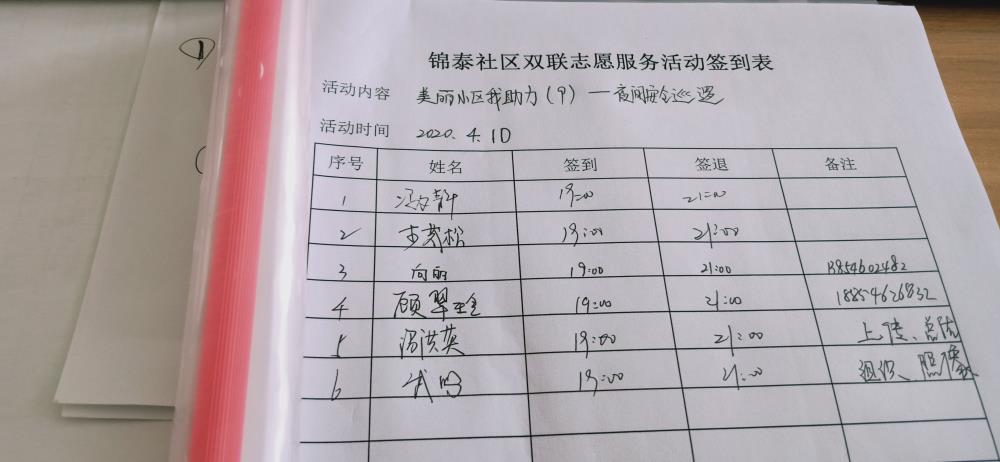 ①
锦泰社区双联志愿服务活动签到表
活动内容 美丽小区我助力(9)—夜间安全巡逻
活动时间 2020.4.10
序号 姓名 签到 签退 备注
1 19:00 21:00
2 松 19:00 21:00
3 向丽 19:00 21:00
4 顾翠 19:00 21:00 18854626832
5 冯洪英 19:00 21:00 上传、总结
6 19:00 21:00 组织、照像